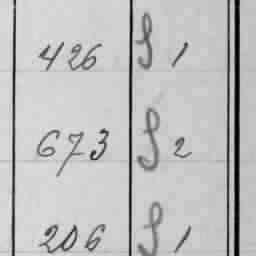 426 S 1
673 S 2
206 S 1